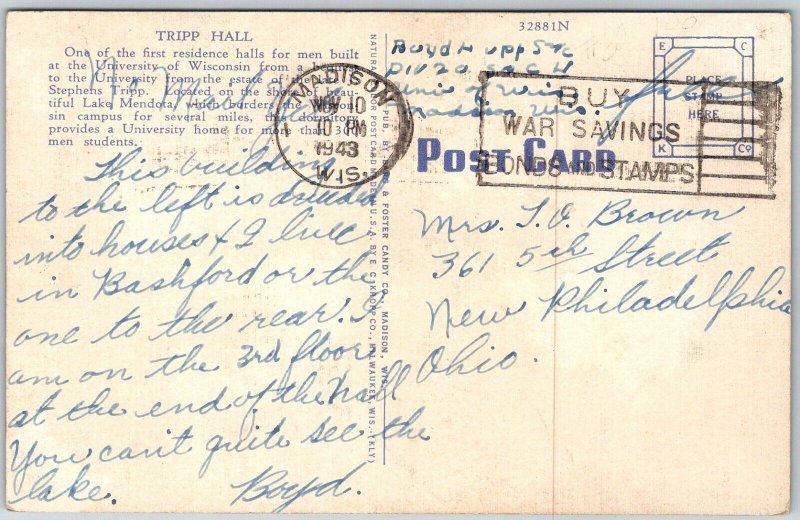 TRIPP HALL
One of the first residence halls for men built
at the University of Wisconsin from a
to the University from the estate of the late
Stephens Tripp. Located on the shore of beau-
tiful Lake Mendota, which borders the Wiscon-
sin campus for several miles, the dormitory
provides a University home for more than 300
men students.
This building
to the left is divided
into houses & I live
in Bashford or the
one to the rear. I
am on the 3rd floor
at the end of the hall
You can't quite see the
lake. Boyd.
NATURAL COLOR POST CARD MADE IN U.S.A. BY E. C. KROPP CO., MILWAUKEE, WIS. (KLY)
PUB. BY & FOSTER CANDY CO., MADISON, WIS.
MADISON
NOV 10
10 PM
1943
WIS.
32881N
Boyd H upp S 2/c
Div 20
Univ of Wis
Madison Wis.
Free
E C
PLACE
STAMP
HERE
K Co
BUY
WAR SAVINGS
BONDS AND STAMPS
POST CARD
Mrs. T. O. Brown
361 5th Street
New Philadelphia
Ohio.